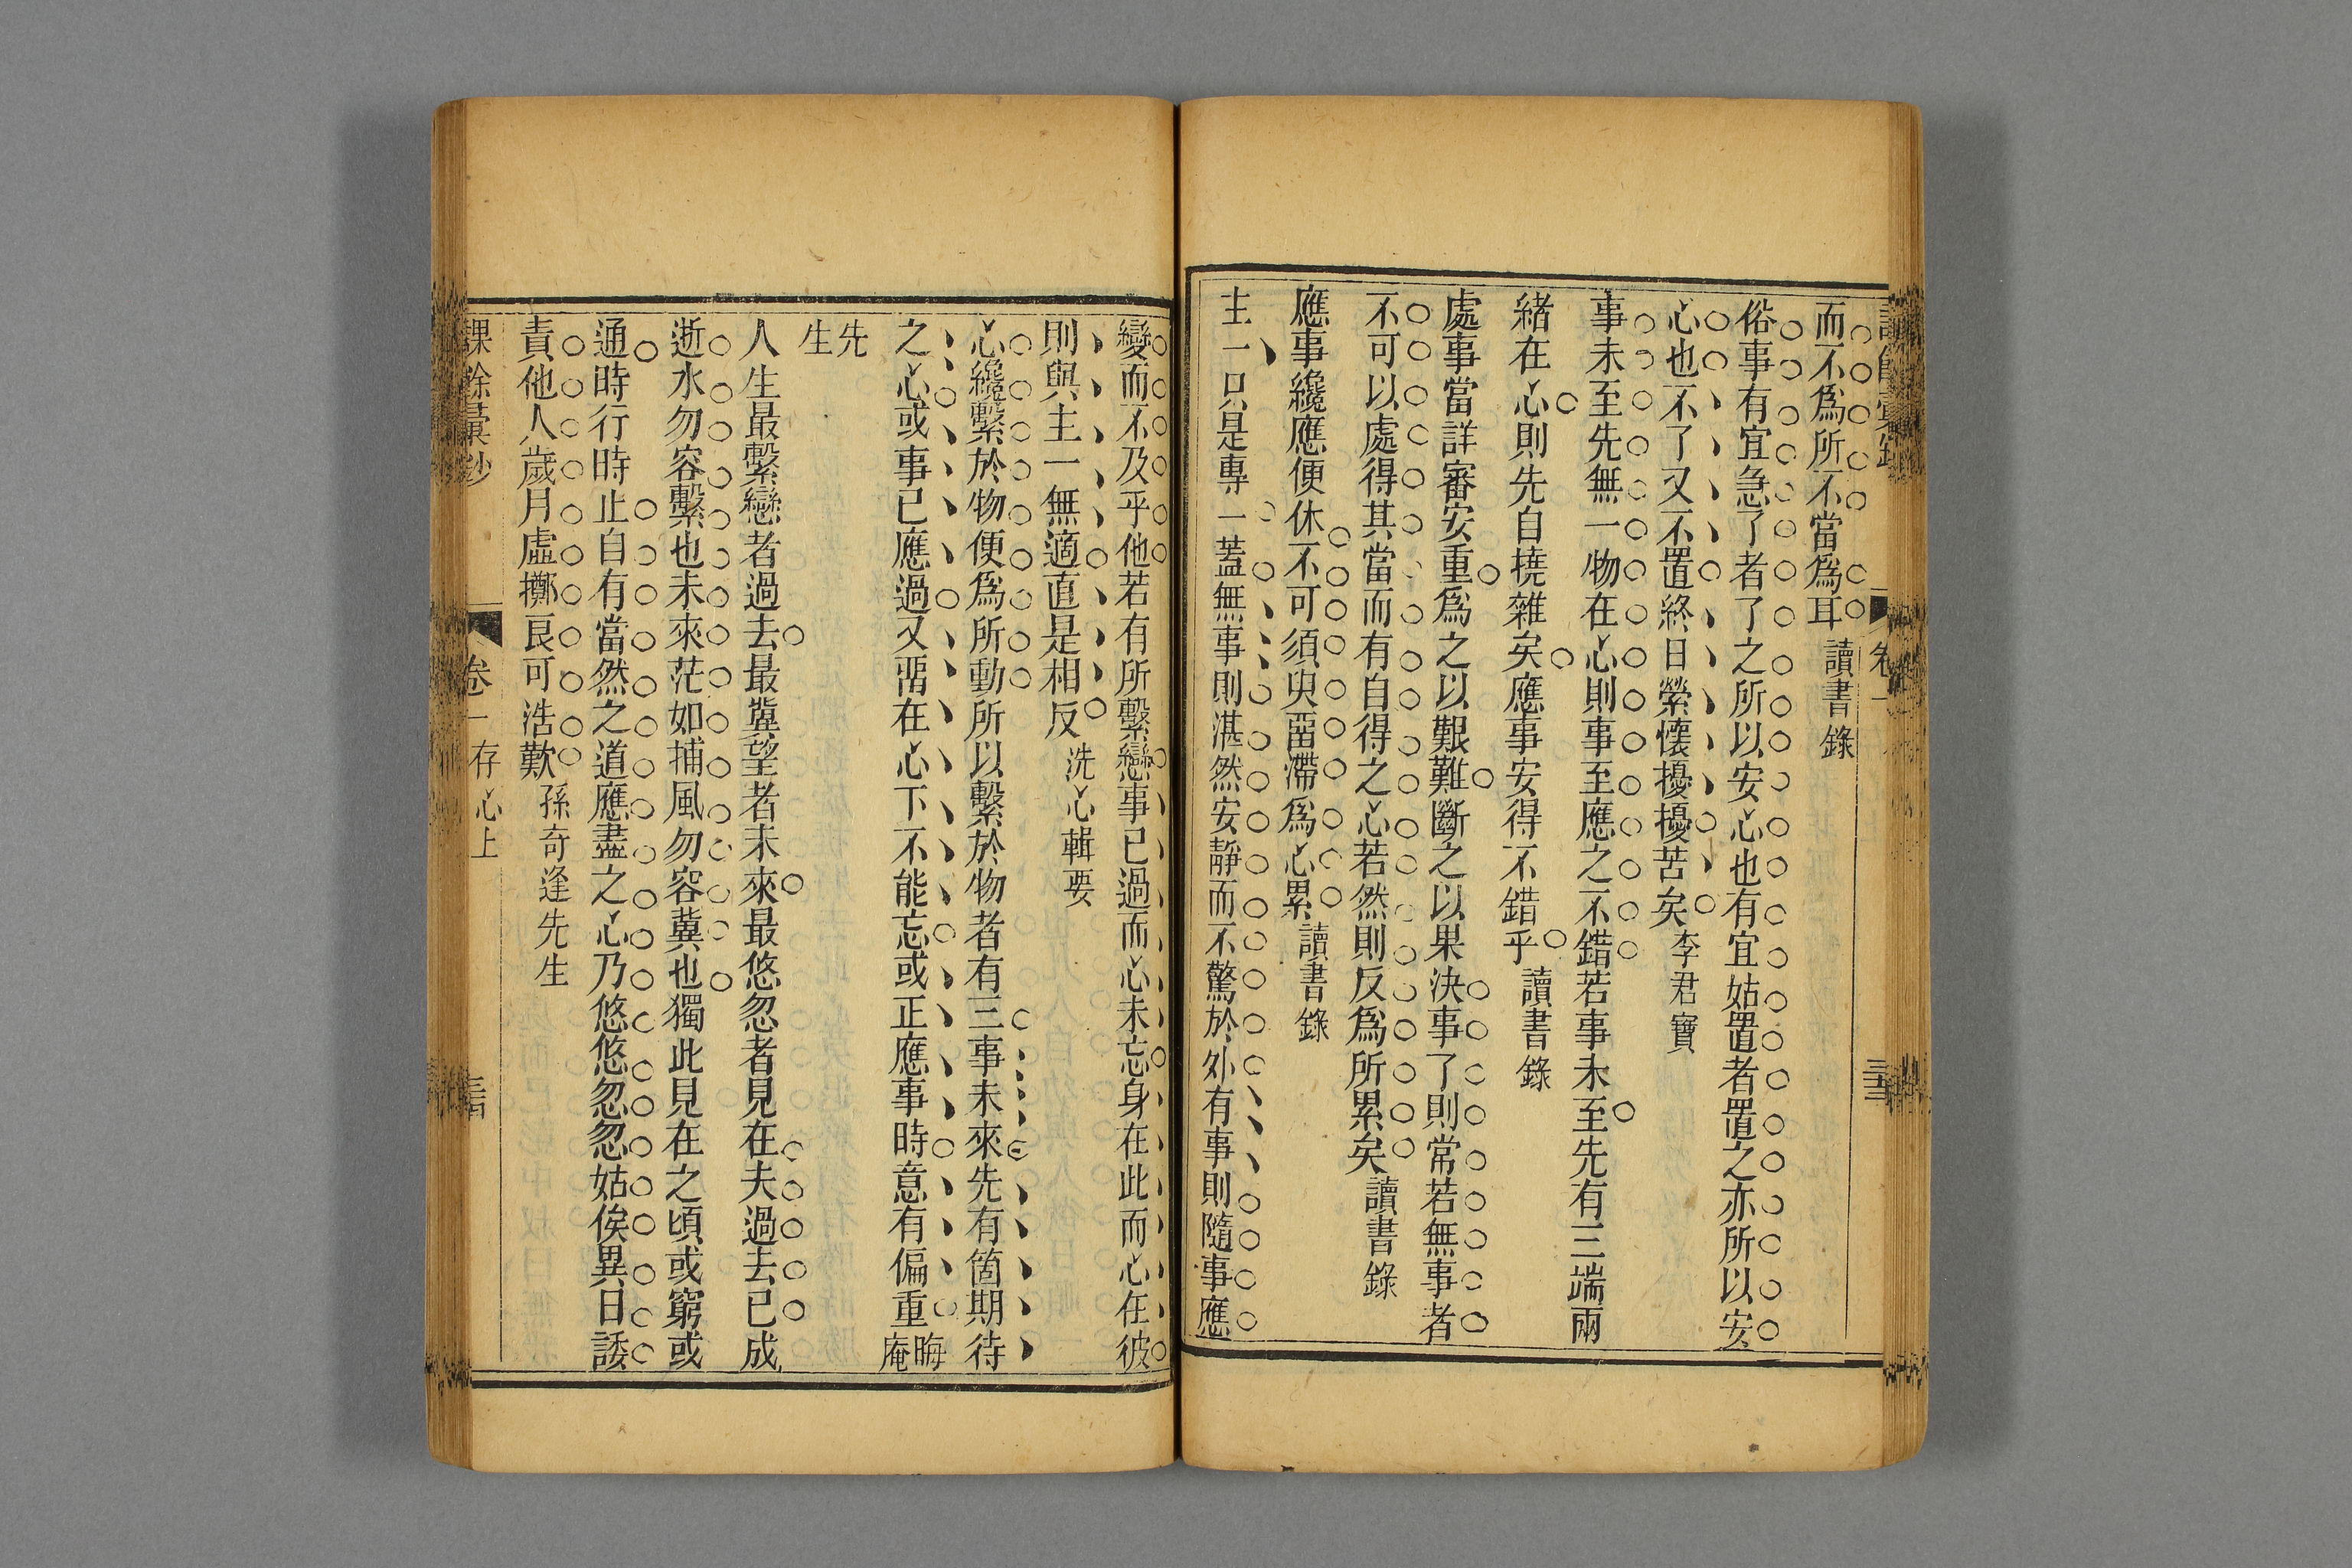 而不爲所不當爲耳讀書錄
俗事有宜急了者了之所以安心也有宜姑置者置之亦所以安
心也不了又不置終日縈懷擾擾苦矣李君實
事未至先無一物在心則事至應之不錯若事未至先有三端兩
緒在心則先自撓雜矣應事安得不錯乎讀書錄
處事當詳審安重爲之以艱難斷之以果決事了則常若無事者
不可以處得其當而有自得之心若然則反爲所累矣讀書錄
應事纔應便休不可須臾畱滯爲心累讀書錄
主一只是專一蓋無事則湛然安靜而不驚於外有事則隨事應
變而不及乎他若有所繫戀事已過而心未忘身在此而心在彼
則與主一無適直是相反洗心輯要
心纔繫於物便爲所動所以繫於物者有三事未來先有箇期待
之心或事已應過又畱在心下不能忘或正應事時意有偏重晦庵
先生
人生最繫戀者過去最冀望者未來最悠忽者見在夫過去已成
逝水勿容繫也未來茫如捕風勿容冀也獨此見在之頃或窮或
通時行時止自有當然之道應盡之心乃悠悠忽忽姑俟異日諉
責他人歲月虛擲良可浩歎孫奇逢先生
課餘彙鈔 卷一存心上